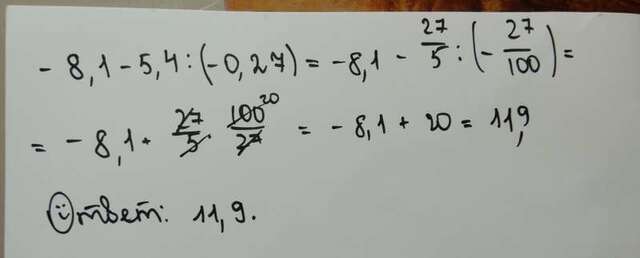 - 8,1 - 5,4 : (-0,27) = -8,1 - 27/5 : (- 27/100) =
= - 8,1 + 27/5 · 100/27 20 = - 8,1 + 20 = 11,9
Ответ: 11,9.